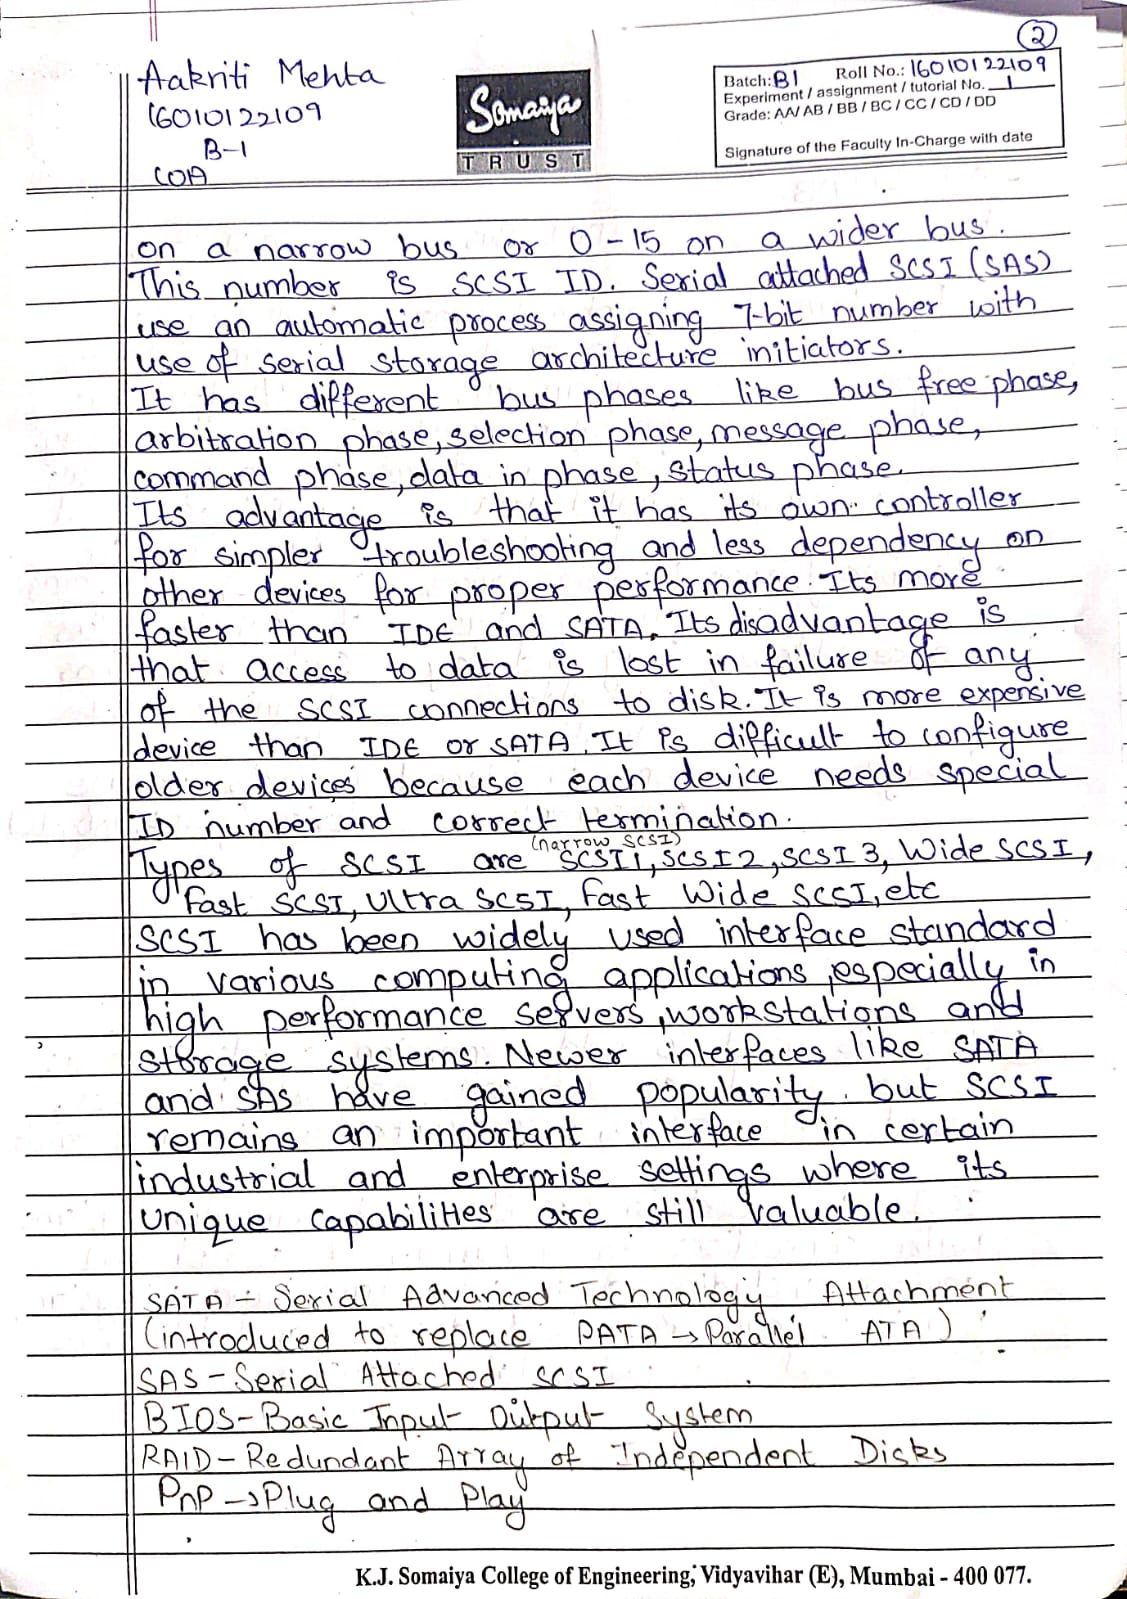 2
Aakriti Mehta
16010122109
B-1
COA
Somaiya
TRUST
Batch: B1 Roll No.: 16010122109
Experiment / assignment / tutorial No. 1
Grade: AA/ AB / BB / BC / CC / CD / DD
Signature of the Faculty In-Charge with date
on a narrow bus or 0-15 on a wider bus.
This number is SCSI ID. Serial attached SCSI (SAS)
use an automatic process assigning 7-bit number with
use of serial storage architecture initiators.
It has different bus phases like bus free phase,
arbitration phase, selection phase, message phase,
command phase, data in phase, status phase.
Its advantage is that it has its own controller
for simpler troubleshooting and less dependency on
other devices for proper performance. Its more
faster than IDE and SATA. Its disadvantage is
that access to data is lost in failure of any
of the SCSI connections to disk. It is more expensive
device than IDE or SATA. It is difficult to configure
older devices because each device needs special
ID number and correct termination.
(narrow SCSI)
Types of SCSI are SCSI1, SCSI2, SCSI3, Wide SCSI,
Fast SCSI, Ultra SCSI, Fast Wide SCSI, etc
SCSI has been widely used interface standard
in various computing applications, especially in
high performance servers, workstations and
storage systems. Newer interfaces like SATA
and SAS have gained popularity but SCSI
remains an important interface in certain
industrial and enterprise settings where its
unique capabilities are still valuable.
SATA - Serial Advanced Technology Attachment
(introduced to replace PATA → Parallel ATA)
SAS - Serial Attached SCSI
BIOS - Basic Input Output System
RAID - Redundant Array of Independent Disks
PnP → Plug and Play
K.J. Somaiya College of Engineering, Vidyavihar (E), Mumbai - 400 077.